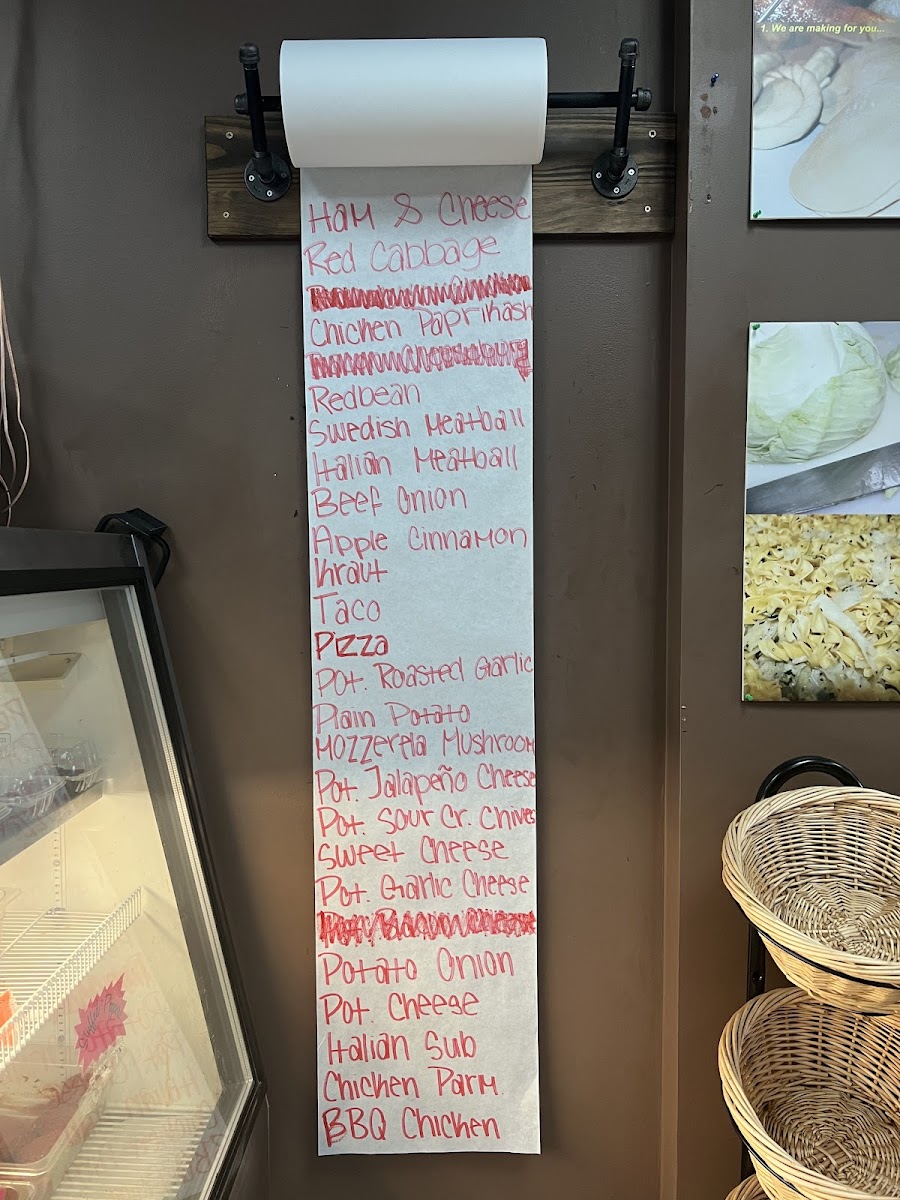 1. We are making for you...
Ham & Cheese
Red Cabbage
Chicken Paprikash
Redbean
Swedish Meatball
Italian Meatball
Beef Onion
Apple Cinnamon
Kraut
Taco
Pizza
Pot. Roasted Garlic
Plain Potato
Mozzerela Mushroom
Pot. Jalapeño Cheese
Pot. Sour Cr. Chives
Sweet Cheese
Pot. Garlic Cheese
Potato Onion
Pot. Cheese
Italian Sub
Chicken Parm.
BBQ Chicken